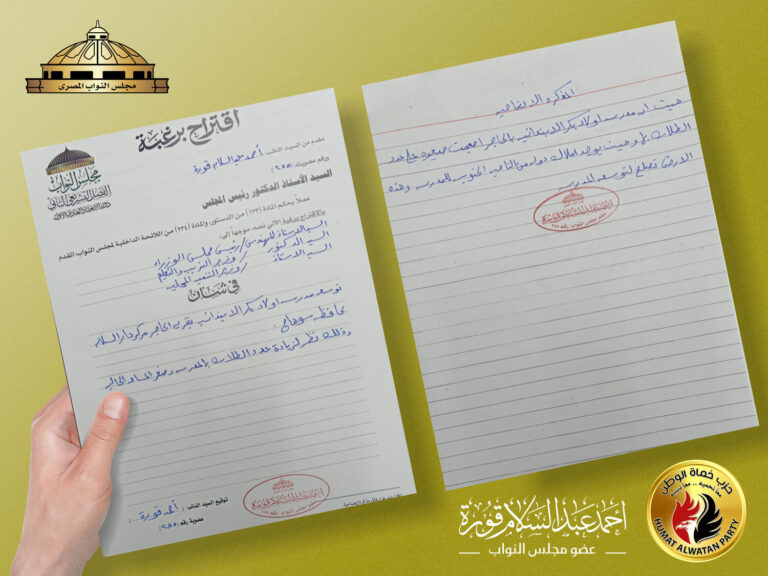 مجلس النواب المصرى
اقتراح برغبة
مجلس النواب
الفصل التشريعى الثانى
مقدم من السيد النائب: أحمد عبد السلام قورة
ورقم عضويته: (٢٥٥)
السيد الأستاذ الدكتور رئيس المجلس
عملاً بحكم المادة (١٣٣) من الدستور، والمادة (٢٣٤) من اللائحة الداخلية لمجلس النواب، أتقدم
بالاقتراح برغبة الآتي نصه، موجهاً إلى:
السيد الأستاذ المهندس / رئيس مجلس الوزراء
السيد الدكتور / وزير التربية والتعليم
السيد الاستاذ / وزير التنمية المحلية
فى شأن
توسعه مدرسه اولاد بكر الابتدائيه بقريه الحاجر مركز دار السلام
محافظه سوهاج
وذلك نظر لزيادة عدد الطلاب بالمدرسه وصغر المساحه الحاليه
توقيع السيد النائب: أحمد قورة
عضوية رقم (٢٥٥)
المذكره الايضاحيه
حيث ان مدرسه اولاد بكر الابتدائيه بالحاجر اصبحت صغيره على عدد
الطلاب بها وحيث يوجد املاك دوله من الناحيه الجنوبيه للمدرسه وهذه
الارض تصلح لتوسعه المدرسه
احمد عبد السلام قورة
عضو مجلس النواب
حزب حماة الوطن
HUMAT ALWATAN PARTY